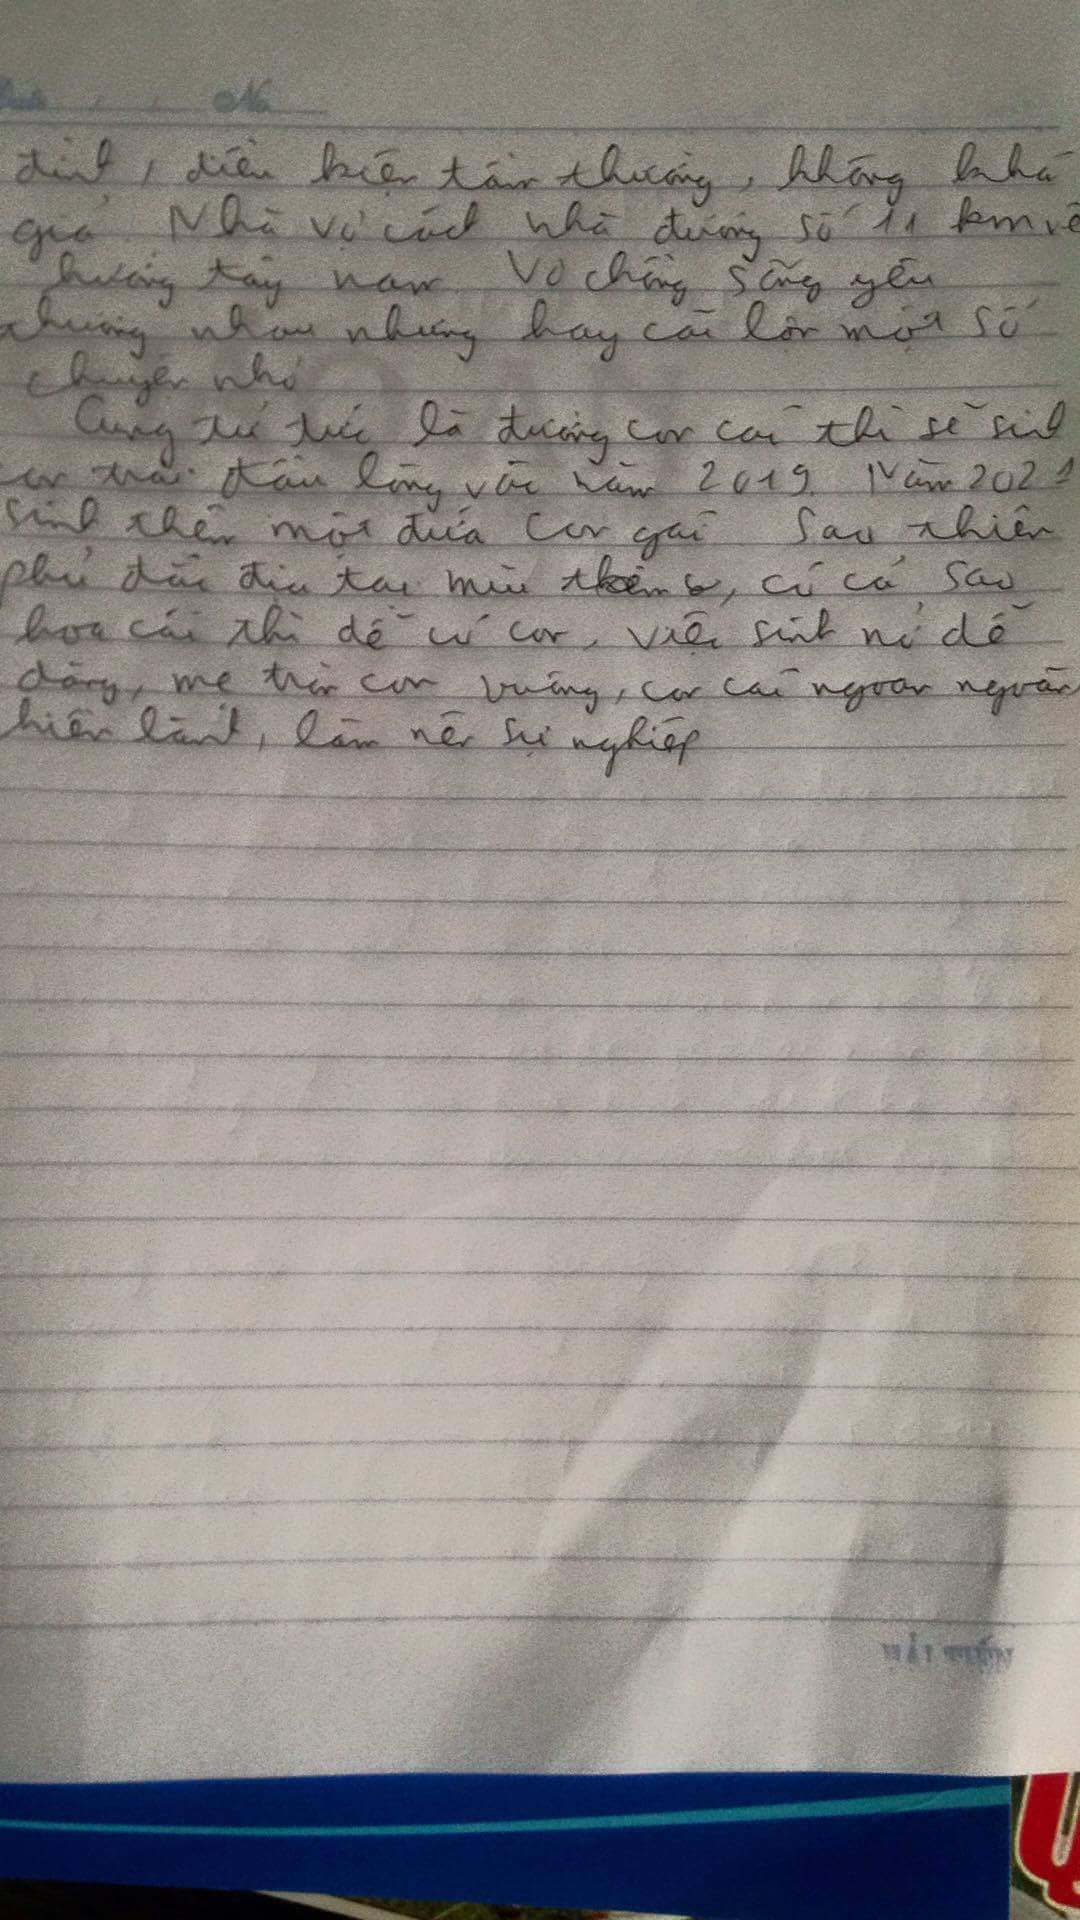 định, điều kiện tầm thường, không khá
giả. Nhà vợ cách nhà đương số 11 km về
hướng tây nam. Vợ chồng sống yêu
thương nhau nhưng hay cãi lộn một số
chuyện nhỏ
Cung tử tức là đường con cái thì sẽ sinh
con trai đầu lòng vào năm 2019. Năm 2021
sinh thêm một đứa con gái. Sao thiên
phủ đắc địa tại mùi, có cả sao
hoa cái thì dễ có con, việc sinh nở dễ
dàng, mẹ tròn con vuông, con cái ngoan ngoãn
hiền lành, làm nên sự nghiệp